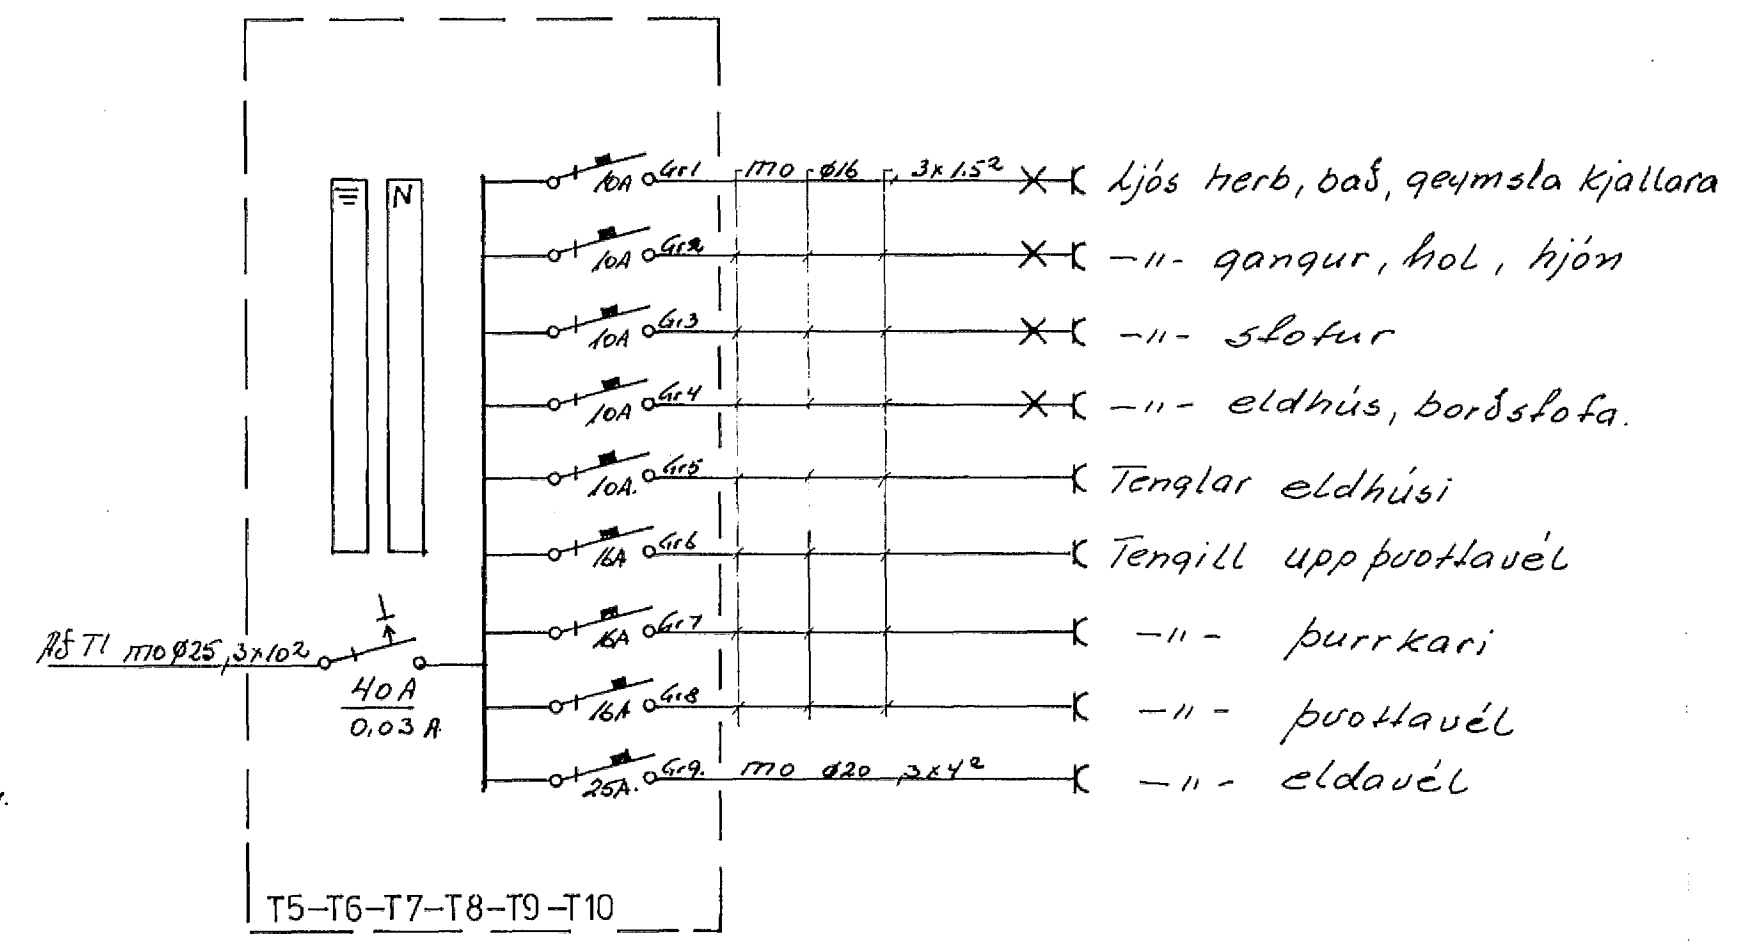 10A Gr1 mo ø16, 3x1.5² Ljós herb, bað, geymsla kjallara
N
10A Gr2 -"- gangur, hol, hjón
10A Gr3 -"- stofur
10A Gr4 -"- eldhús, borðstofa.
10A. Gr5 Tenglar eldhúsi
16A Gr6 Tengill uppþvottavél
16A Gr7 -"- þurrkari
Af T1 mo ø25, 3x10²
40A
0,03 A.
16A Gr8 -"- þvottavél
25A. Gr9. mo ø20, 3x4² -"- eldavél
T5-T6-T7-T8-T9-T10